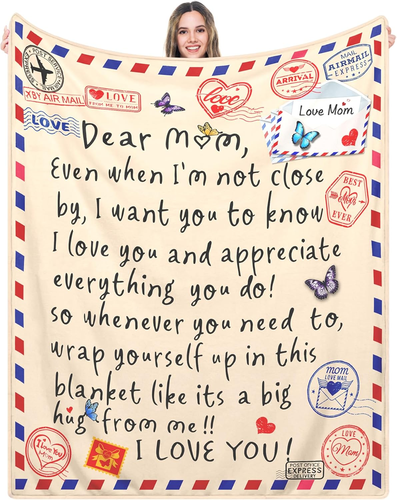 POST SERVICE
BY AIR MAIL
LOVE
LOVE
love
ARRIVAL
MAIL
AIRMAIL
EXPRESS
Love Mom
Dear Mom,
Even when I'm not close
by, I want you to know
I love you and appreciate
everything you do!
so whenever you need to,
wrap yourself up in this
blanket like its a big
hug from me!!
I LOVE YOU!
BEST
Mom
EVER
mom
LOVE MAIL
I Love You
Mom
Love
Mom
POST OFFICE
EXPRESS
DELIVERY